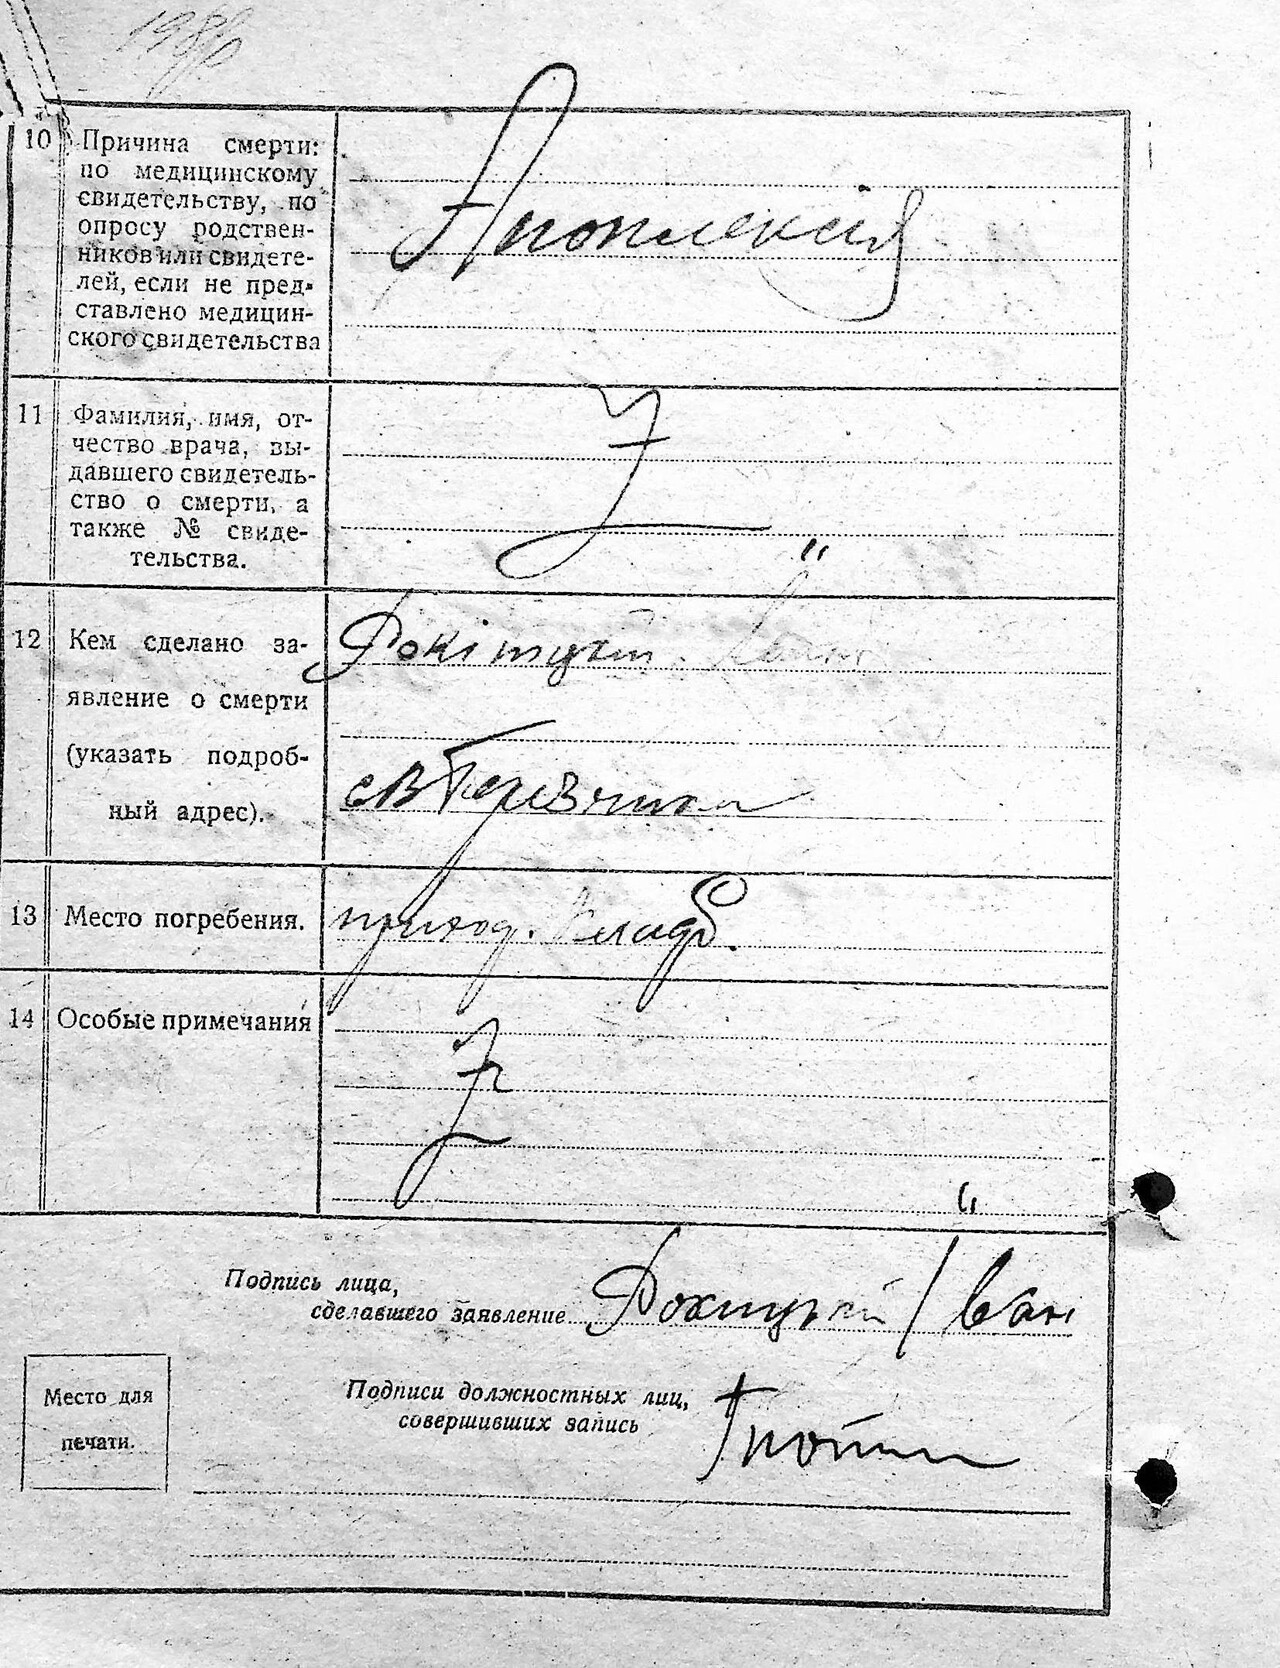 10 Причина смерти:
по медицинскому
свидетельству, по
опросу родствен-
ников или свидете-
лей, если не пред-
ставлено медицин-
ского свидетельства
Апоплексія
11 Фамилия, имя, от-
чество врача, вы-
давшего свидетель-
ство о смерти, а
также № свиде-
тельства.
12 Кем сделано за-
явление о смерти
(указать подроб-
ный адрес).
13 Место погребения.
приход. кладб.
14 Особые примечания
Подпись лица,
сделавшего заявление Рокицкий Іван
Подписи должностных лиц,
совершивших запись
Место для
печати.